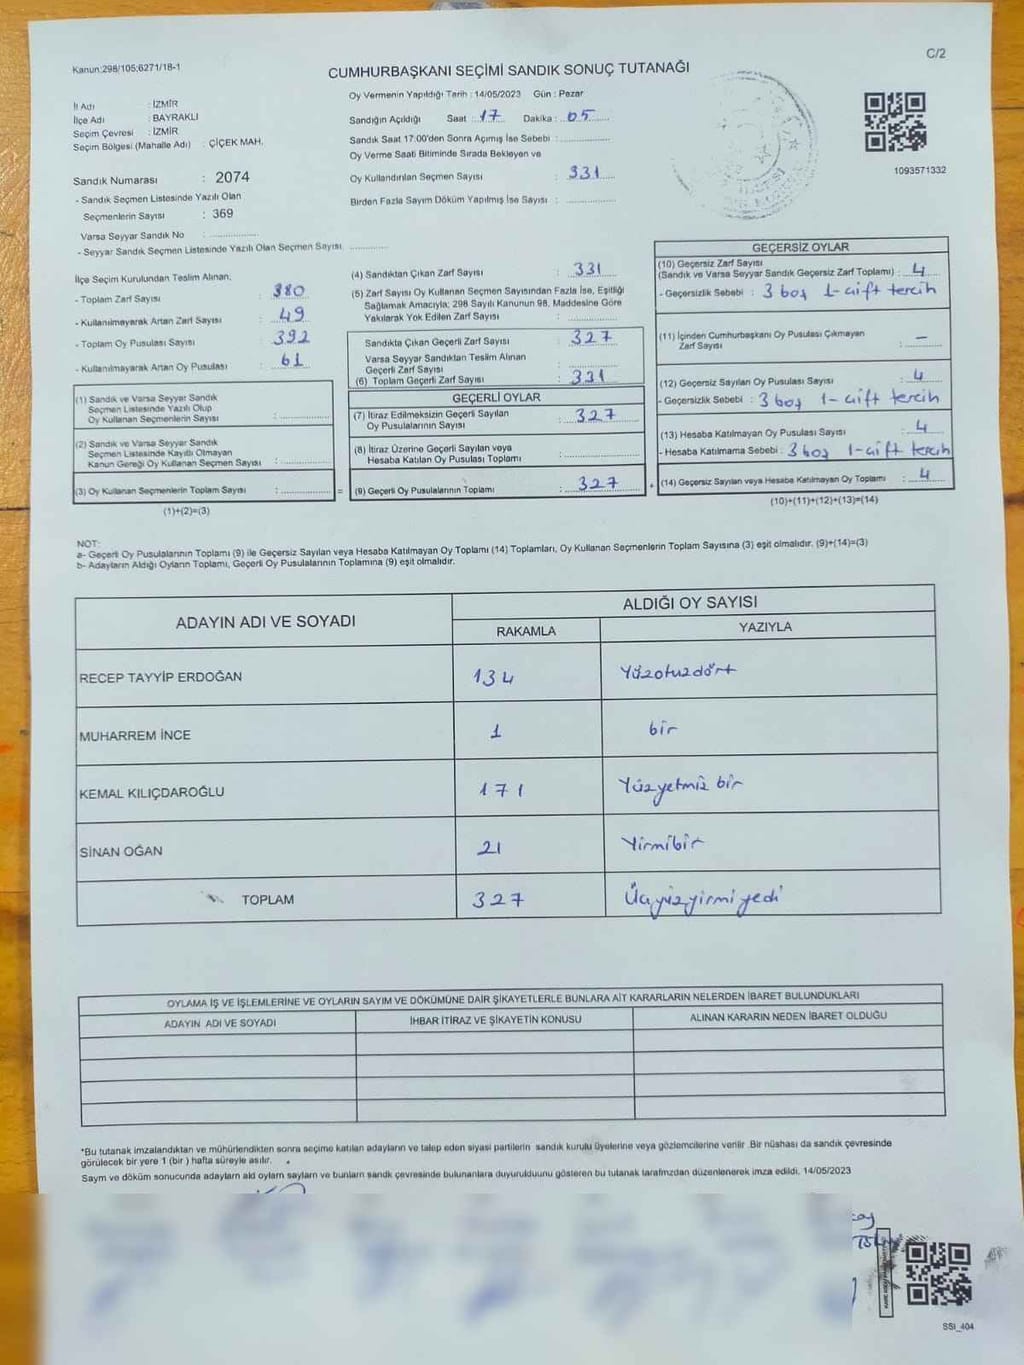 Kanun:298/105;6271/18-1
C/2
CUMHURBAŞKANI SEÇİMİ SANDIK SONUÇ TUTANAĞI
İl Adı : İZMİR
İlçe Adı : BAYRAKLI
Seçim Çevresi : İZMİR
Seçim Bölgesi (Mahalle Adı) : ÇİÇEK MAH.
Sandık Numarası : 2074
- Sandık Seçmen Listesinde Yazılı Olan
Seçmenlerin Sayısı : 369
Varsa Seyyar Sandık No : ..............
- Seyyar Sandık Seçmen Listesinde Yazılı Olan Seçmen Sayısı ..............
Oy Vermenin Yapıldığı Tarih : 14/05/2023 Gün : Pazar
Sandığın Açıldığı Saat : 17 Dakika : 05
Sandık Saat 17:00'den Sonra Açımış İse Sebebi : ..............
Oy Verme Saati Bitiminde Sırada Bekleyen ve
Oy Kullandırılan Seçmen Sayısı : 331
Birden Fazla Sayım Döküm Yapılmış İse Sayısı : ..............
1093571332
İlçe Seçim Kurulundan Teslim Alınan;
- Toplam Zarf Sayısı : 380
- Kullanılmayarak Artan Zarf Sayısı : 49
- Toplam Oy Pusulası Sayısı : 392
- Kullanılmayarak Artan Oy Pusulası : 61
(1) Sandık ve Varsa Seyyar Sandık
Seçmen Listesinde Yazılı Olup
Oy Kullanan Seçmenlerin Sayısı : ..............
(2) Sandık ve Varsa Seyyar Sandık
Seçmen Listesinde Kayıtlı Olmayan
Kanun Gereği Oy Kullanan Seçmen Sayısı : ..............
(3) Oy Kullanan Seçmenlerin Toplam Sayısı : .............. =
(1)+(2)=(3)
(4) Sandıktan Çıkan Zarf Sayısı : 331
(5) Zarf Sayısı Oy Kullanan Seçmen Sayısından Fazla İse, Eşitliği
Sağlamak Amacıyla; 298 Sayılı Kanunun 98. Maddesine Göre
Yakılarak Yok Edilen Zarf Sayısı : ..............
Sandıkta Çıkan Geçerli Zarf Sayısı : 327
Varsa Seyyar Sandıktan Teslim Alınan
Geçerli Zarf Sayısı : ..............
(6) Toplam Geçerli Zarf Sayısı : 331
GEÇERLİ OYLAR
(7) İtiraz Edilmeksizin Geçerli Sayılan
Oy Pusulalarının Sayısı : 327
(8) İtiraz Üzerine Geçerli Sayılan veya
Hesaba Katılan Oy Pusulası Toplamı : ..............
(9) Geçerli Oy Pusulalarının Toplamı : 327 +
GEÇERSİZ OYLAR
(10) Geçersiz Zarf Sayısı
(Sandık ve Varsa Seyyar Sandık Geçersiz Zarf Toplamı) : 4
- Geçersizlik Sebebi : 3 boş 1-çift tercih
(11) İçinden Cumhurbaşkanı Oy Pusulası Çıkmayan
Zarf Sayısı : —
(12) Geçersiz Sayılan Oy Pusulası Sayısı : 4
- Geçersizlik Sebebi : 3 boş 1-çift tercih
(13) Hesaba Katılmayan Oy Pusulası Sayısı : 4
- Hesaba Katılmama Sebebi : 3 boş 1-çift tercih
(14) Geçersiz Sayılan veya Hesaba Katılmayan Oy Toplamı : 4
(10)+(11)+(12)+(13)=(14)
NOT:
a- Geçerli Oy Pusulalarının Toplamı (9) ile Geçersiz Sayılan veya Hesaba Katılmayan Oy Toplamı (14) Toplamları, Oy Kullanan Seçmenlerin Toplam Sayısına (3) eşit olmalıdır. (9)+(14)=(3)
b- Adayların Aldığı Oyların Toplamı, Geçerli Oy Pusulalarının Toplamına (9) eşit olmalıdır.
ADAYIN ADI VE SOYADI
ALDIĞI OY SAYISI
RAKAMLA YAZIYLA
RECEP TAYYİP ERDOĞAN 134 Yüzotuzdört
MUHARREM İNCE 1 bir
KEMAL KILIÇDAROĞLU 171 Yüzyetmiş bir
SİNAN OĞAN 21 Yirmibir
TOPLAM 327 Üçyüzyirmiyedi
OYLAMA İŞ VE İŞLEMLERİNE VE OYLARIN SAYIM VE DÖKÜMÜNE DAİR ŞİKAYETLERLE BUNLARA AİT KARARLARIN NELERDEN İBARET BULUNDUKLARI
ADAYIN ADI VE SOYADI İHBAR İTİRAZ VE ŞİKAYETİN KONUSU ALINAN KARARIN NEDEN İBARET OLDUĞU
*Bu tutanak imzalandıktan ve mühürlendikten sonra seçime katılan adayların ve talep eden siyasi partilerin sandık kurulu üyelerine veya gözlemcilerine verilir .Bir nüshası da sandık çevresinde
görülecek bir yere 1 (bir ) hafta süreyle asılır.
Saym ve döküm sonucunda adaylarn ald oylarn saylarn ve bunlarn sandk çevresinde bulunanlara duyurulduunu gösteren bu tutanak tarafmzdan düzenlenerek imza edildi. 14/05/2023
SSI_404